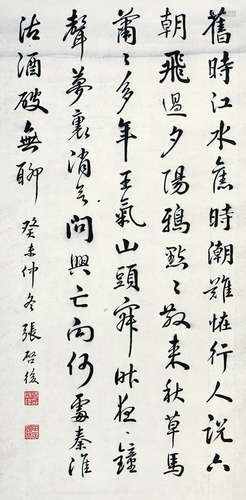 舊時江水舊時潮難怪行人說六
朝飛過夕陽鴉點〻散來秋草馬
蕭〻多年王氣山頭寂昨夜鐘
聲夢裏消問興亡向何處秦淮
沽酒破無聊
癸未仲冬張啓後